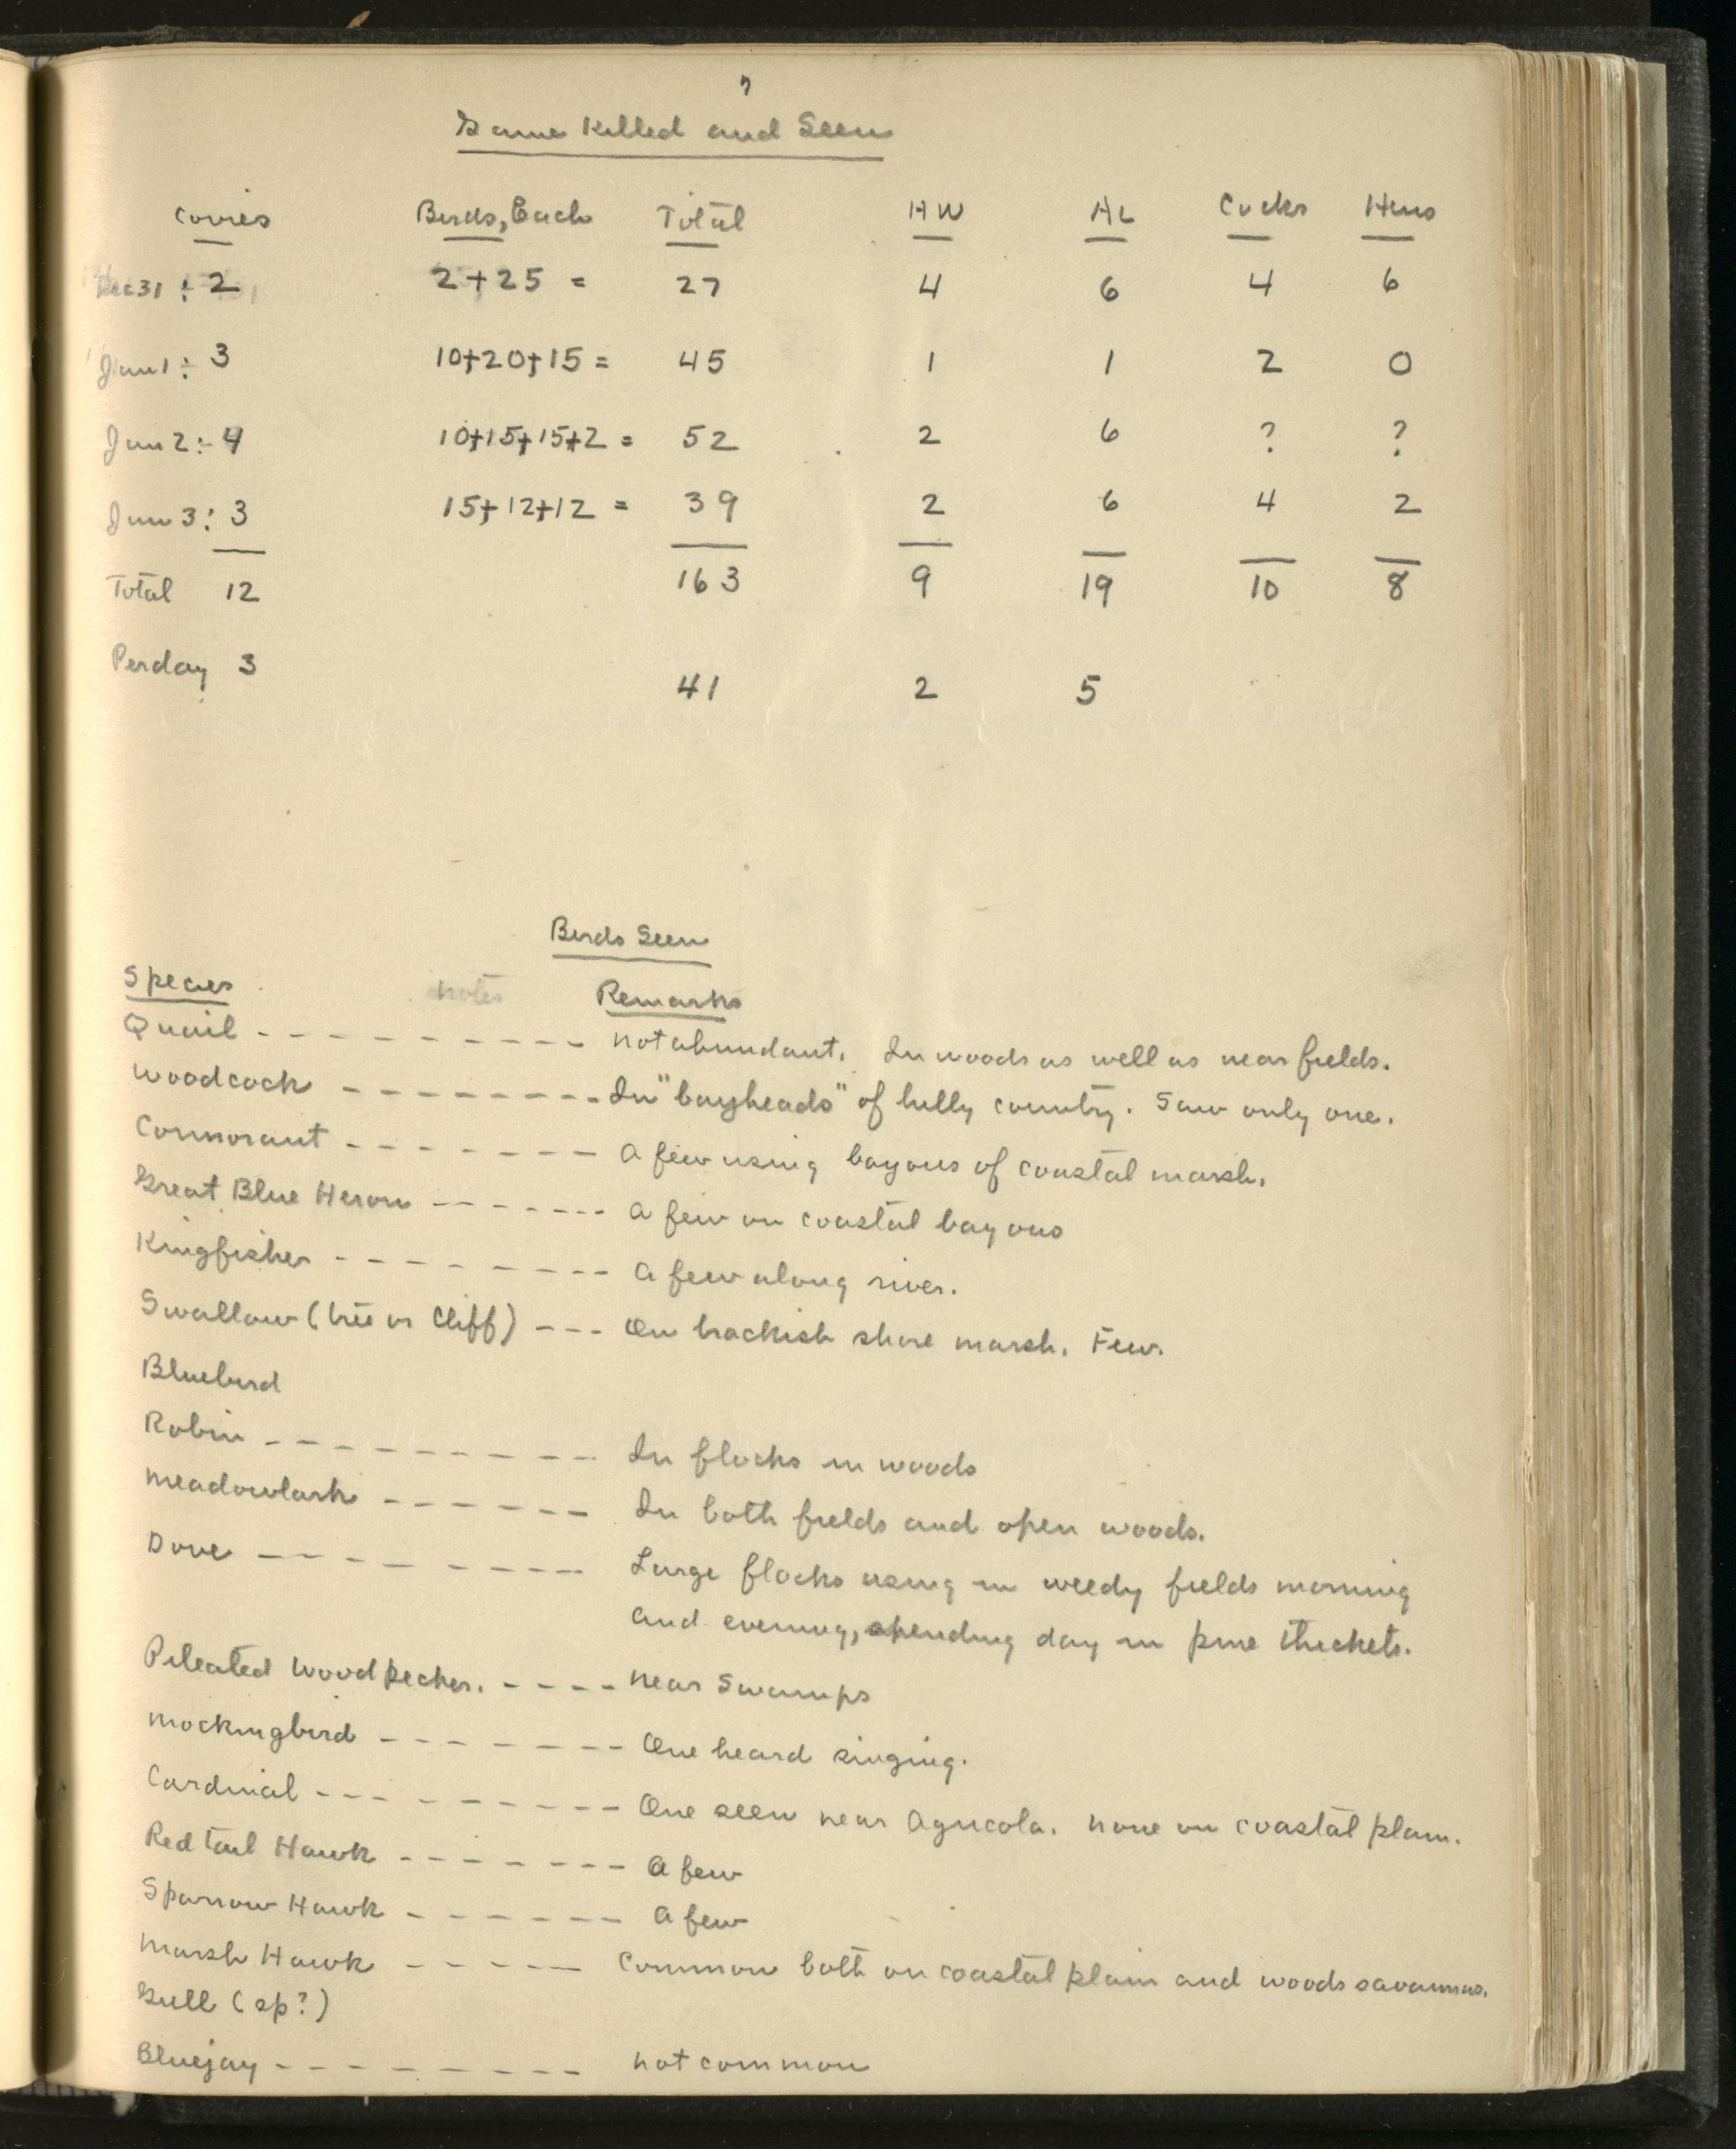 7
Game Killed and Seen
Covies Birds, Each Total HW AL Cocks Hens
Dec 31 : 2 2+25 = 27 4 6 4 6
Jan 1 : 3 10+20+15 = 45 1 1 2 0
Jan 2 : 4 10+15+15+2 = 52 2 6 ? ?
Jan 3 : 3 15+12+12 = 39 2 6 4 2
Total 12 163 9 19 10 8
Per day 3 41 2 5
Birds Seen
Species notes Remarks
Quail - - - - - - - - - - not abundant. In woods as well as near fields.
Woodcock - - - - - - - - In "bayheads" of hilly country. Saw only one.
Cormorant - - - - - - - - A few using bayous of coastal marsh.
Great Blue Heron - - - - - - - A few on coastal bayous
Kingfisher - - - - - - - - - A few along river.
Swallow (tree or Cliff) - - - On brackish shore marsh. Few.
Bluebird
Robin - - - - - - - - - - In flocks in woods
Meadowlark - - - - - - - In both fields and open woods.
Dove - - - - - - - - - Large flocks using in weedy fields morning
and evening, spending day in pine thickets.
Pileated Woodpecker. - - - - near Swamps
Mockingbird - - - - - - - - One heard singing.
Cardinal - - - - - - - - - One seen near Agricola. None on coastal plain.
Red tail Hawk - - - - - - - A few
Sparrow Hawk - - - - - - - A few
Marsh Hawk - - - - - - Common both on coastal plain and woods savannas.
Gull (sp?)
Bluejay - - - - - - - - - not common